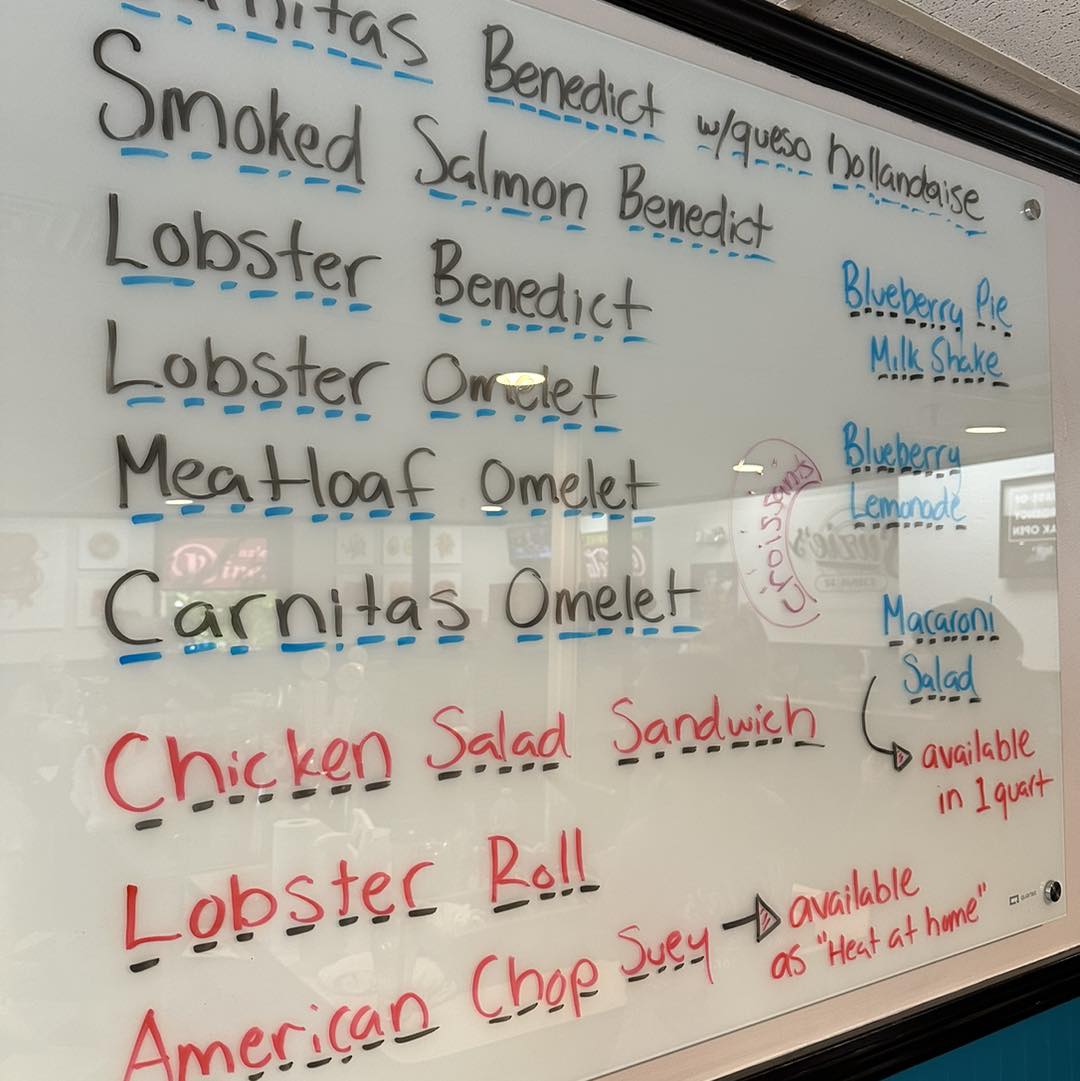 Carnitas Benedict w/queso hollandaise
Smoked Salmon Benedict
Lobster Benedict
Lobster Omelet
Meatloaf Omelet
Carnitas Omelet
Chicken Salad Sandwich
Lobster Roll
American Chop Suey → available
as "Heat at home"
Blueberry Pie
Milk Shake
Blueberry
Lemonade
Macaroni
Salad
available
in 1 quart
Croissants